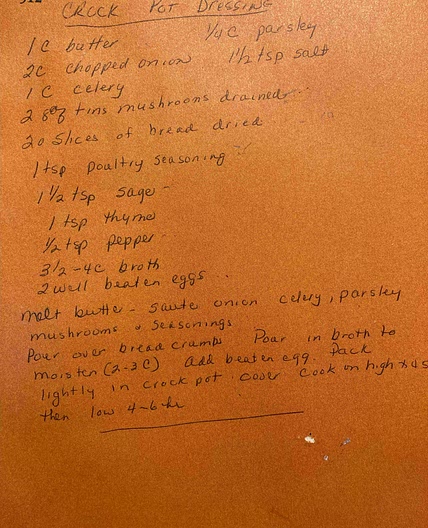 CROCK POT DRESSING
1C butter 1/4 C parsley
2C chopped onion 1 1/2 tsp salt
1C celery
2 8oz tins mushrooms drained
20 slices of bread dried
1 tsp poultry seasoning
1 1/2 tsp sage
1 tsp thyme
1/2 tsp pepper
3 1/2 - 4C broth
2 well beaten eggs
melt butter - saute onion celery, parsley
mushrooms & seasonings
Pour over bread crumbs Pour in broth to
moisten (2-3C) add beaten egg. Pack
lightly in crock pot. cover cook on high
then low 4-6 hr